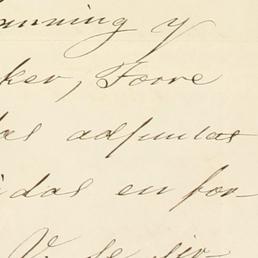 anning y
ker, Torre
las adjuntas
idas en for-
V. se sir-